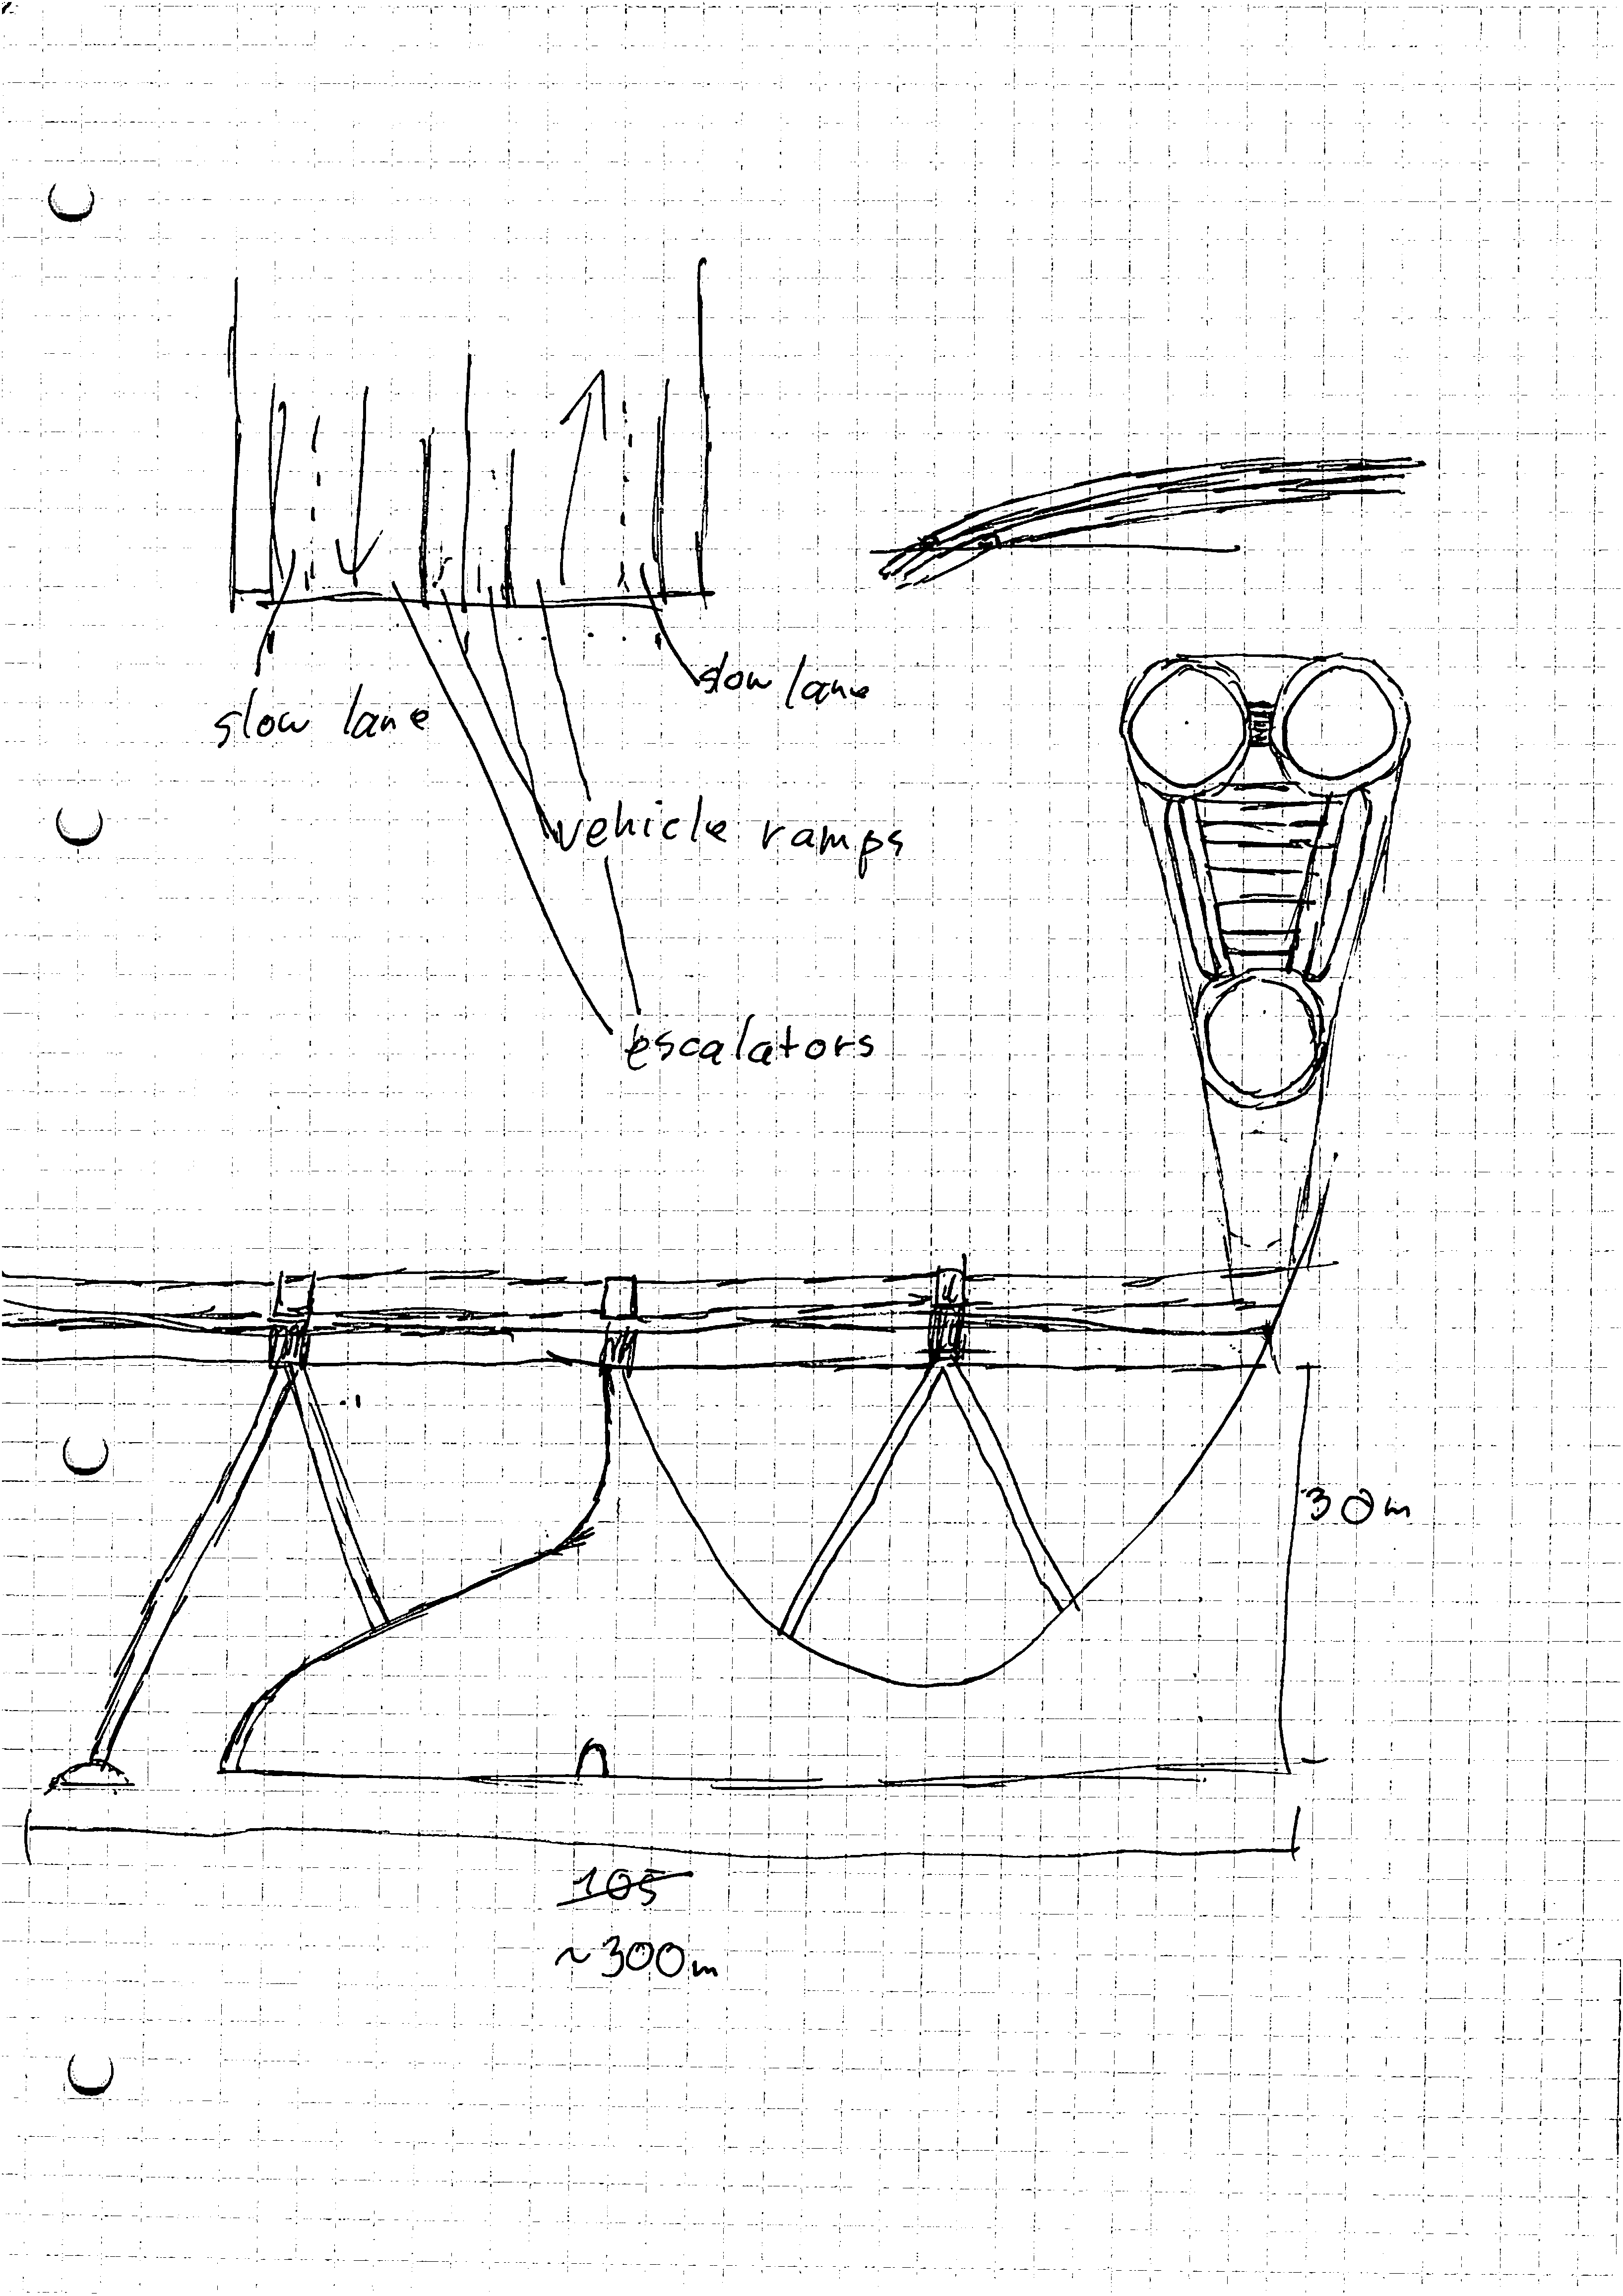 slow lane
slow lane
vehicle ramps
escalators
30m
105
~300m